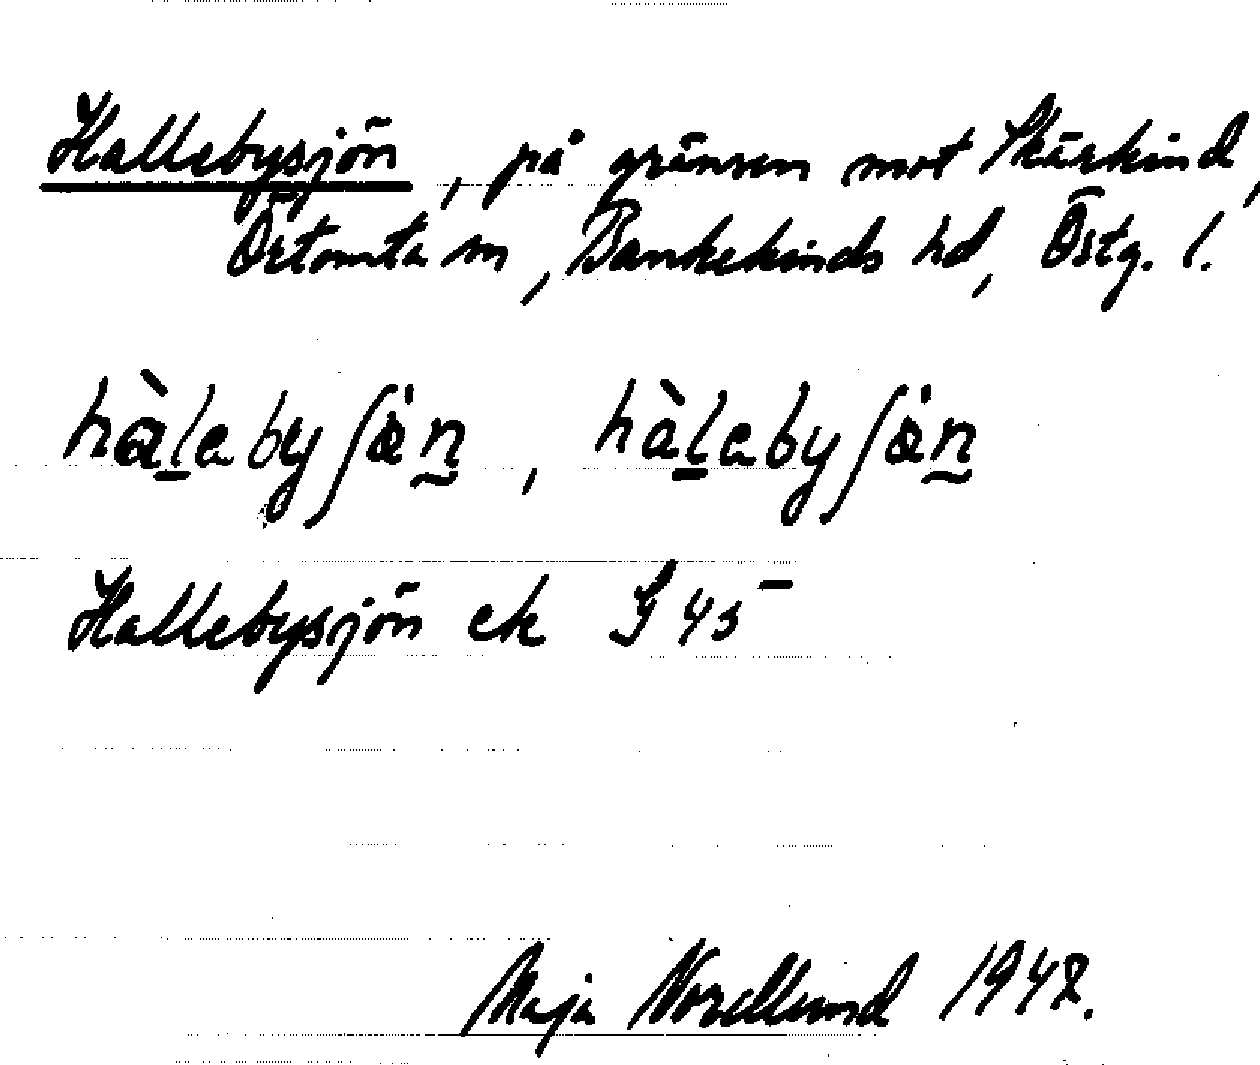 Hallebysjön, på gränsen mot Skärkind,
Örtomta sn, Bankekinds hd, Östg. l.
hàlebyʃön, hàlebyʃön
Hallebysjön ek S 45
Maja Nordlund 1942.